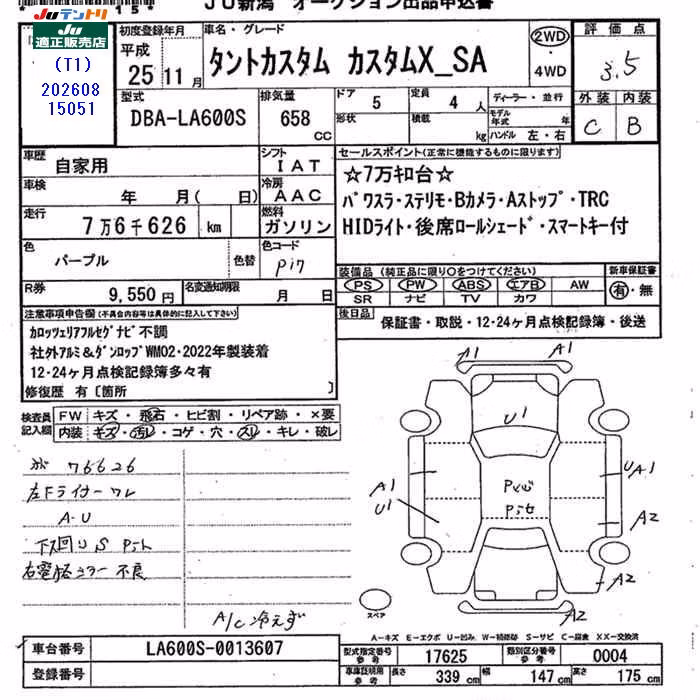 JU新潟 オークション出品申込書
Juテントリ
JU 適正販売店
(T1)
202608
15051
初度登録年月
平成
25 11月
車名・グレード
タントカスタム カスタムX_SA
2WD
・
4WD
評価点
3.5
外装 内装
C B
型式
DBA-LA600S
排気量
658
CC
ドア 5
定員 4 人
形状
積載 kg
ディーラー・並行
モデル年式 年
ハンドル 左・右
車歴
自家用
シフト
IAT
車検
年 月( 日)
冷房
AAC
走行
7万6千626 km
燃料
ガソリン
色
パープル
色替
色コード
P17
R券
9,550円
名変通知期限
月 日
セールスポイント(正常に機能するものに限ります)
☆7万キロ台☆
パワスラ・ステリモ・Bカメラ・Aストップ・TRC
HIDライト・後席ロールシェード・スマートキー付
装備品 (純正品に限り○をつけてください)
PS PW ABS エアB AW
SR ナビ TV カワ
新車保証書
有・無
後日品
保証書・取説・12・24ヶ月点検記録簿・後送
注意事項申告欄(不具合内容等は具体的に記入して下さい)
カロッツェリアフルセグナビ不調
社外アルミ&ダンロップWM02・2022年製装着
12・24ヶ月点検記録簿多々有
修復歴 有〔箇所 〕
検査員記入欄
FW キズ・飛石・ヒビ割・リペア跡・×要
内装 キズ・汚レ・コゲ・穴・スレ・キレ・破レ
76626
A-U
下廻りS
不良
A/C冷えず
A1
A1
U1
A1
U1
UA1
A2
A2
A2
スペア
A－キズ E－エクボ U－凹み W－補修跡 S－サビ C－腐食 XX－交換済
車台番号
LA600S-0013607
登録番号
型式指定番号 参考
17625
類別区分番号 参考
0004
車庫証明用 参考
長さ 339 cm
幅 147 cm
高さ 175 cm